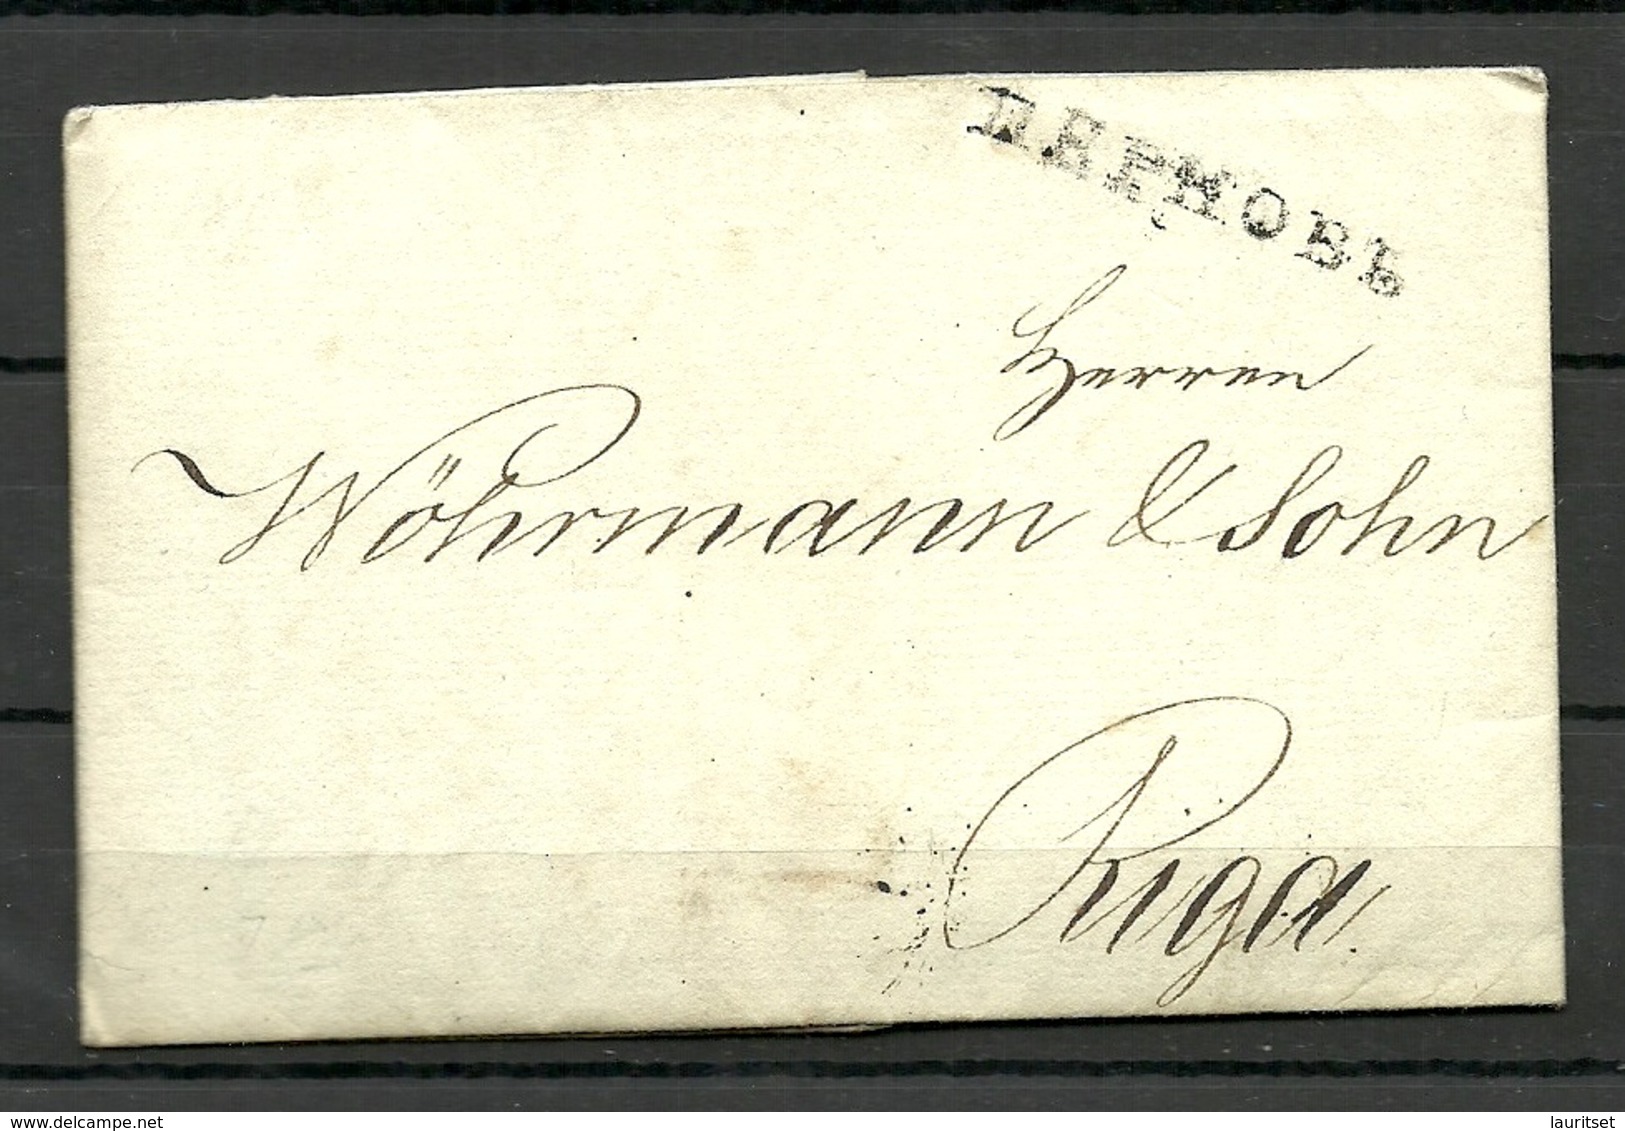 ПЕРНОВЪ
Herren
Wöhrmann & Sohn
Riga.
www.delcampe.net
lauritset